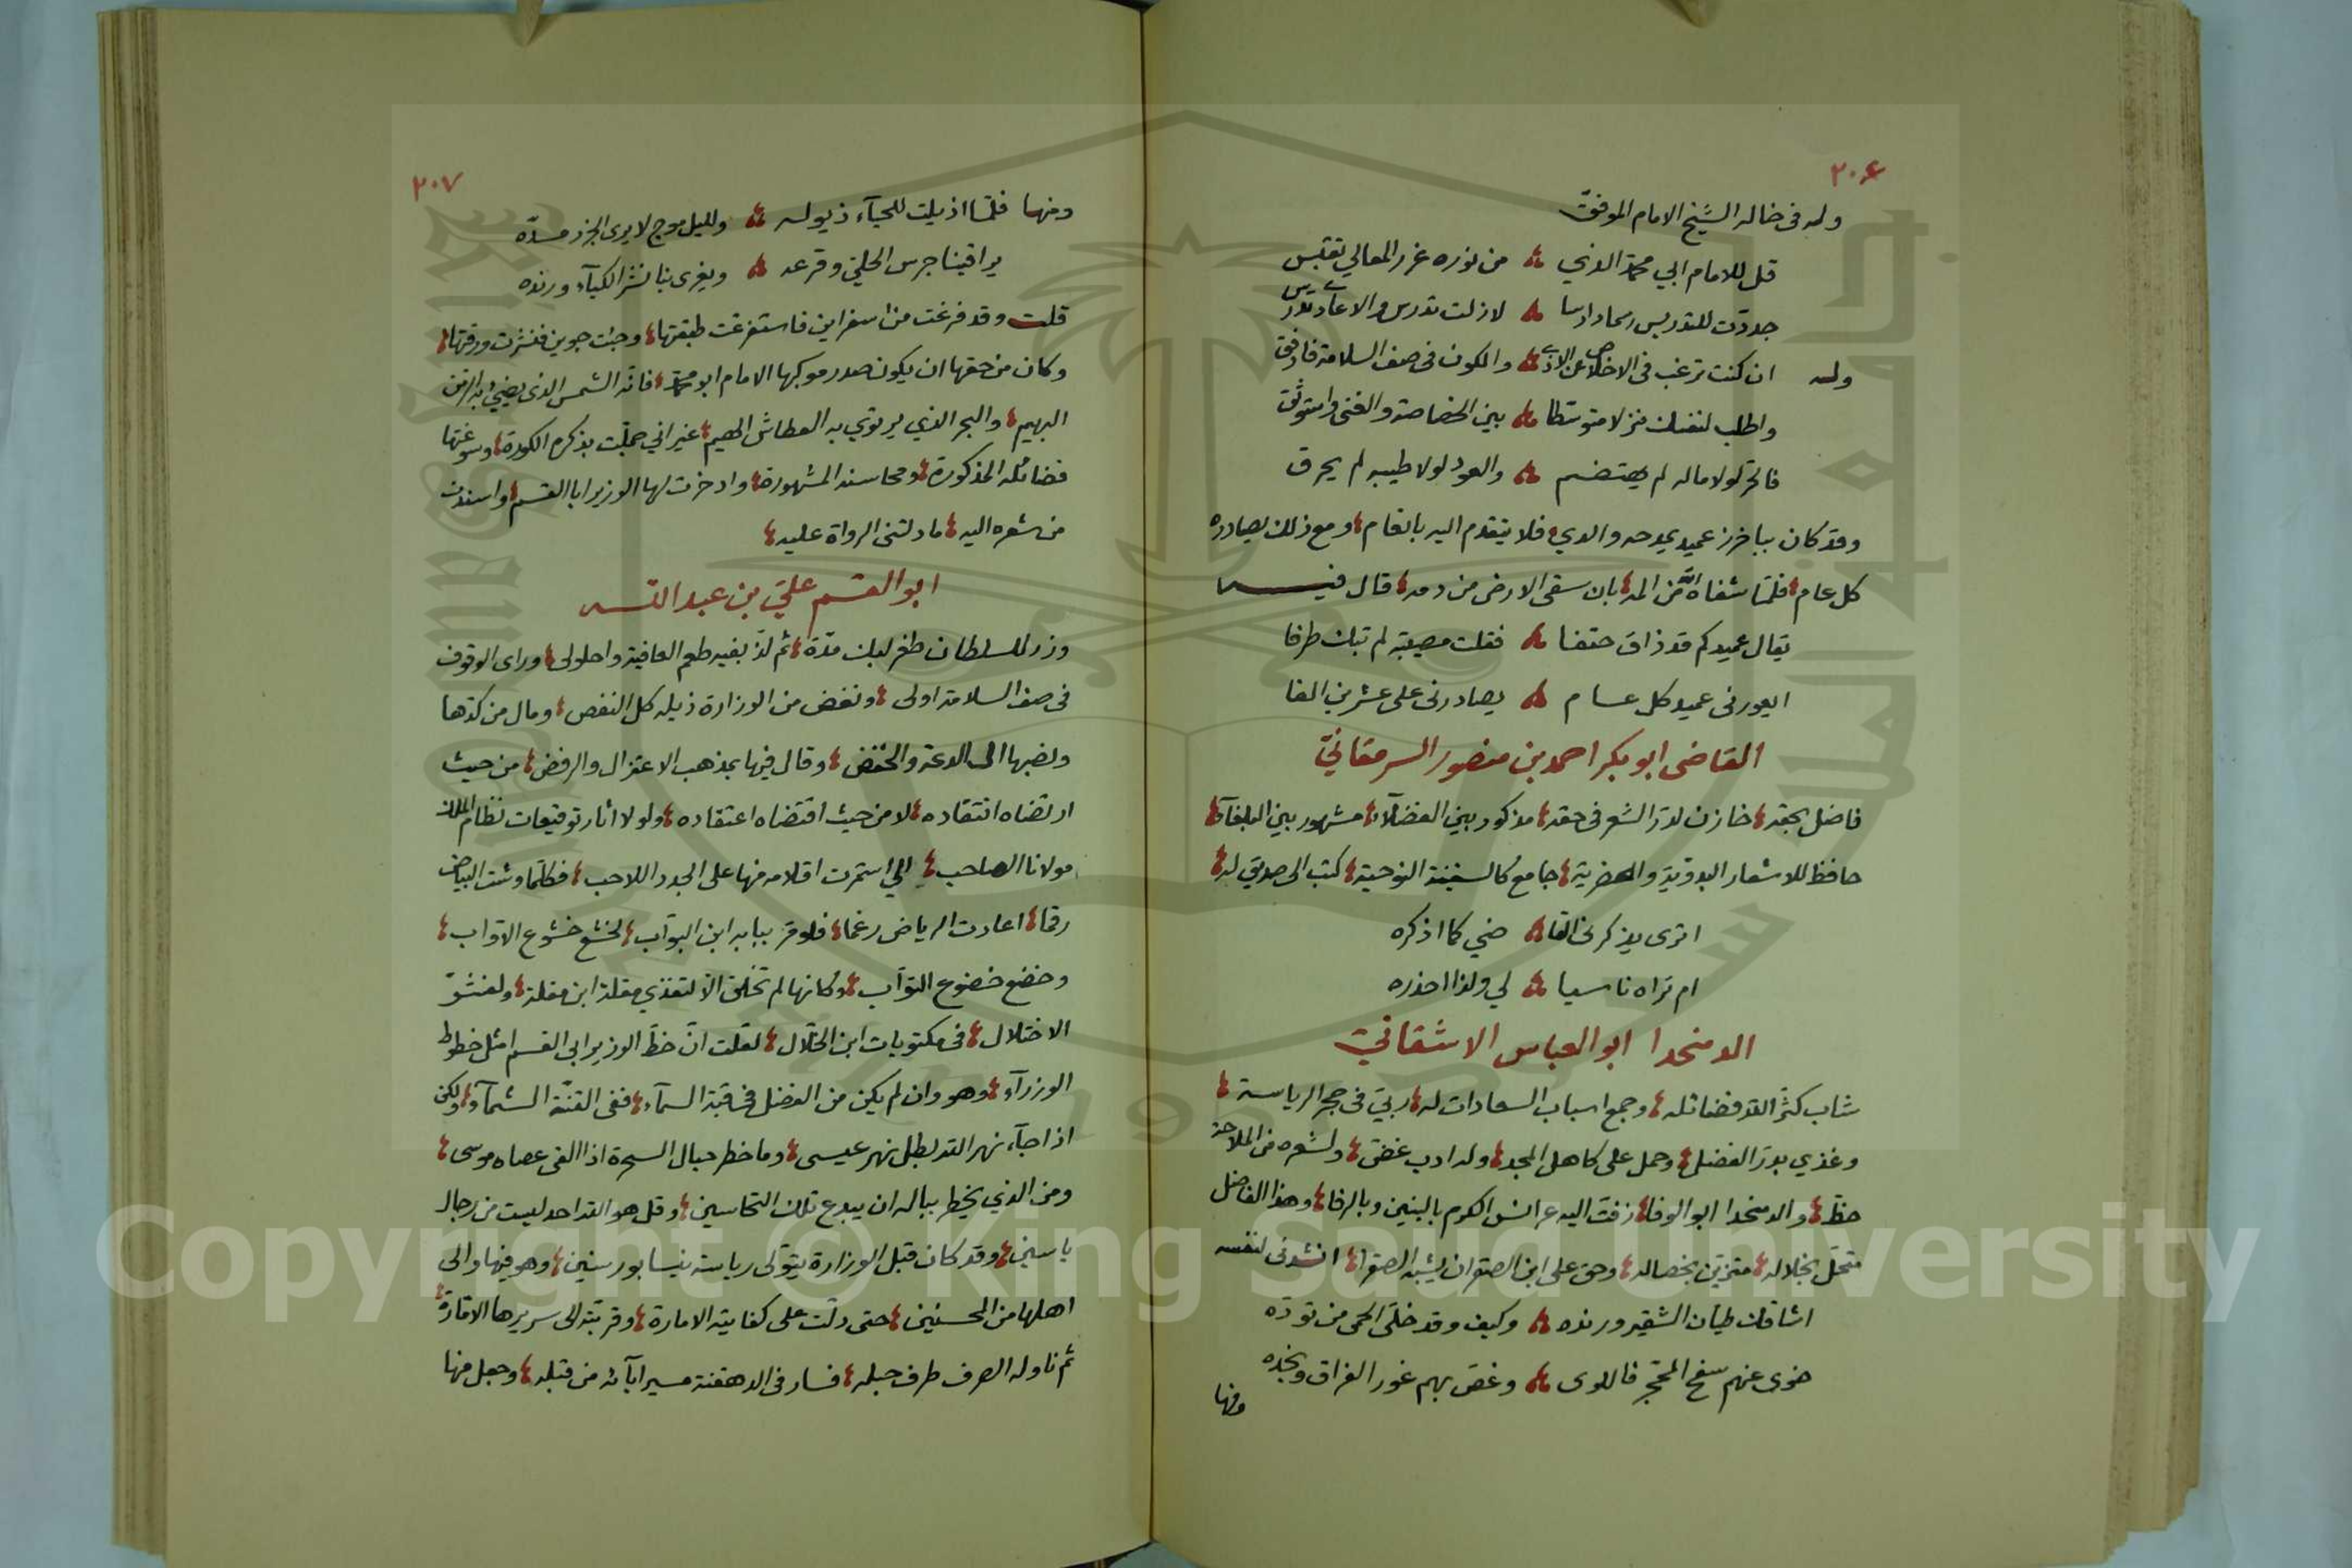 ٢٠٦
وله في خاله الشيخ الامام الموفق
قل للامام ابي محمد الذي من نوره غرر المعالي تقتبس
جددت للتدريس رسما دارسا لا زلت تدرس والاعادي تندرس
وله ان كنت ترغب في الاخلاص عن الاذى والكون في صف السلامة فارفق
واطلب لنفسك منزلا متوسطا بين الخصاصة والغنى واستوثق
فالحر لولا ماله لم يهتضم والعود لولا طيبه لم يحرق
وقد كان بباخرز عميد يمدحه والدي فلا يتقدم اليه بانعام ومع ذلك يصادره
كل عام فلما شفاه الله من المه بان سقى الارض من دمه قال فيه
يقال عميدكم قد ذاق حتفا فقلت مصيبة لم تبك طرفا
ايعورني عميد كل عام يصادرني على عشرين الفا
القاضي ابو بكر احمد بن منصور السرمقاني
فاضل بحقه خازن لدر الشعر في حقه مذكور بين الفضلاء مشهور بين البلغاء
حافظ للاشعار البدوية والحضرية جامع كالسفينة النوحية كتب الى صديق له
اترى يذكرني القا ضي كما اذكره
ام تراه ناسيا لي ولذا احذره
الدهخدا ابو العباس الاشقاني
شاب كثر الله فضائله وجمع اسباب السعادات له ربي في حجر الرياسة
وغذي بدر الفضل وحمل على كاهل المجد وله ادب غض ولشعره من الملاحة
حظ والدهخدا ابو الوفا زفت اليه عرائس الكرم بالبنين وبالرفا وهذا الفاضل
متحل بخلاله متزين بخصاله وحق على ابن الصقر ان يشبه الصقرا انشدني لنفسه
اشاقك طيان الشقير ورنده وكيف وقد خلى الحمى من توده
خوى عنهم سفح المحجر فاللوى وغص بهم غور العراق ونجده
ومنها
٢٠٧
ومنها فلما اذيلت للحياء ذيوله ولليل موج لا يرى الجزر مده
يراقبنا جرس الحلي وقرعه ويغري بنا نشر الكباء ورنده
قلت وقد فرغت من اسفراين فاستفرغت طبقتها وجئت جوين فنشرت ورقتها
وكان من حقها ان يكون صدر موكبها الامام ابو محمد فانه الشمس الذي يضيء به الزمن
البهيم والبحر الذي يرتوي به العطاش الهيم غير اني جملت بذكره الكورة وسوغتها
فضائله المذكورة ومحاسنه المشهورة وادخرت لها الوزير ابا القسم واسندت
من شعره اليه ما دلتني الرواة عليه
ابو القسم علي بن عبد الله
وزر للسلطان طغرلبك مدة ثم لذ بفيه طعم العافية واحلولى وراى الوقوف
في صف السلامة اولى ونفض من الوزارة ذيله كل النفض ومال من كدها
ونصبها الى الدعة والخفض وقال فيها بمذهب الاعتزال والرفض من حيث
ارتضاه انتقاده لا من حيث اقتضاه اعتقاده ولولا اثار توقيعات نظام الملك
مولانا الصاحب التي استمرت اقلامه منها على الجدد اللاحب فكلما وشت البياض
رقما اعادت الرياض رغما فلو مر ببابه ابن البواب لخشع خشوع الاواب
وخضع خضوع التواب وكانها لم تخلق الا لتقذي مقلة ابن مقلة ولفشو
الاختلال في مكتوبات ابن الخلال لقلت ان خط الوزير ابي القسم امثل خطوط
الوزراء وهو وان لم يكن من الفضل في قبة السماء ففي القنة الشماء ولكن
اذا جاء نهر الله بطل نهر عيسى وما خطر حبال السحرة اذا القى عصاه موسى
ومن الذي يخطر بباله ان يبدع تلك التحاسين وقل هو الله احد ليست من رجال
ياسين وقد كان قبل الوزارة يتولى رياسة نيسابور سنين وهو فيها والى
اهلها من المحسنين حتى دلت على كفايته الامارة وقربته الى سريرها الامارة
ثم ناوله الصرف طرف حبله فسار في الدهقنة مسير ابائه من قبله وجعل منها
Copyright © King Saud University